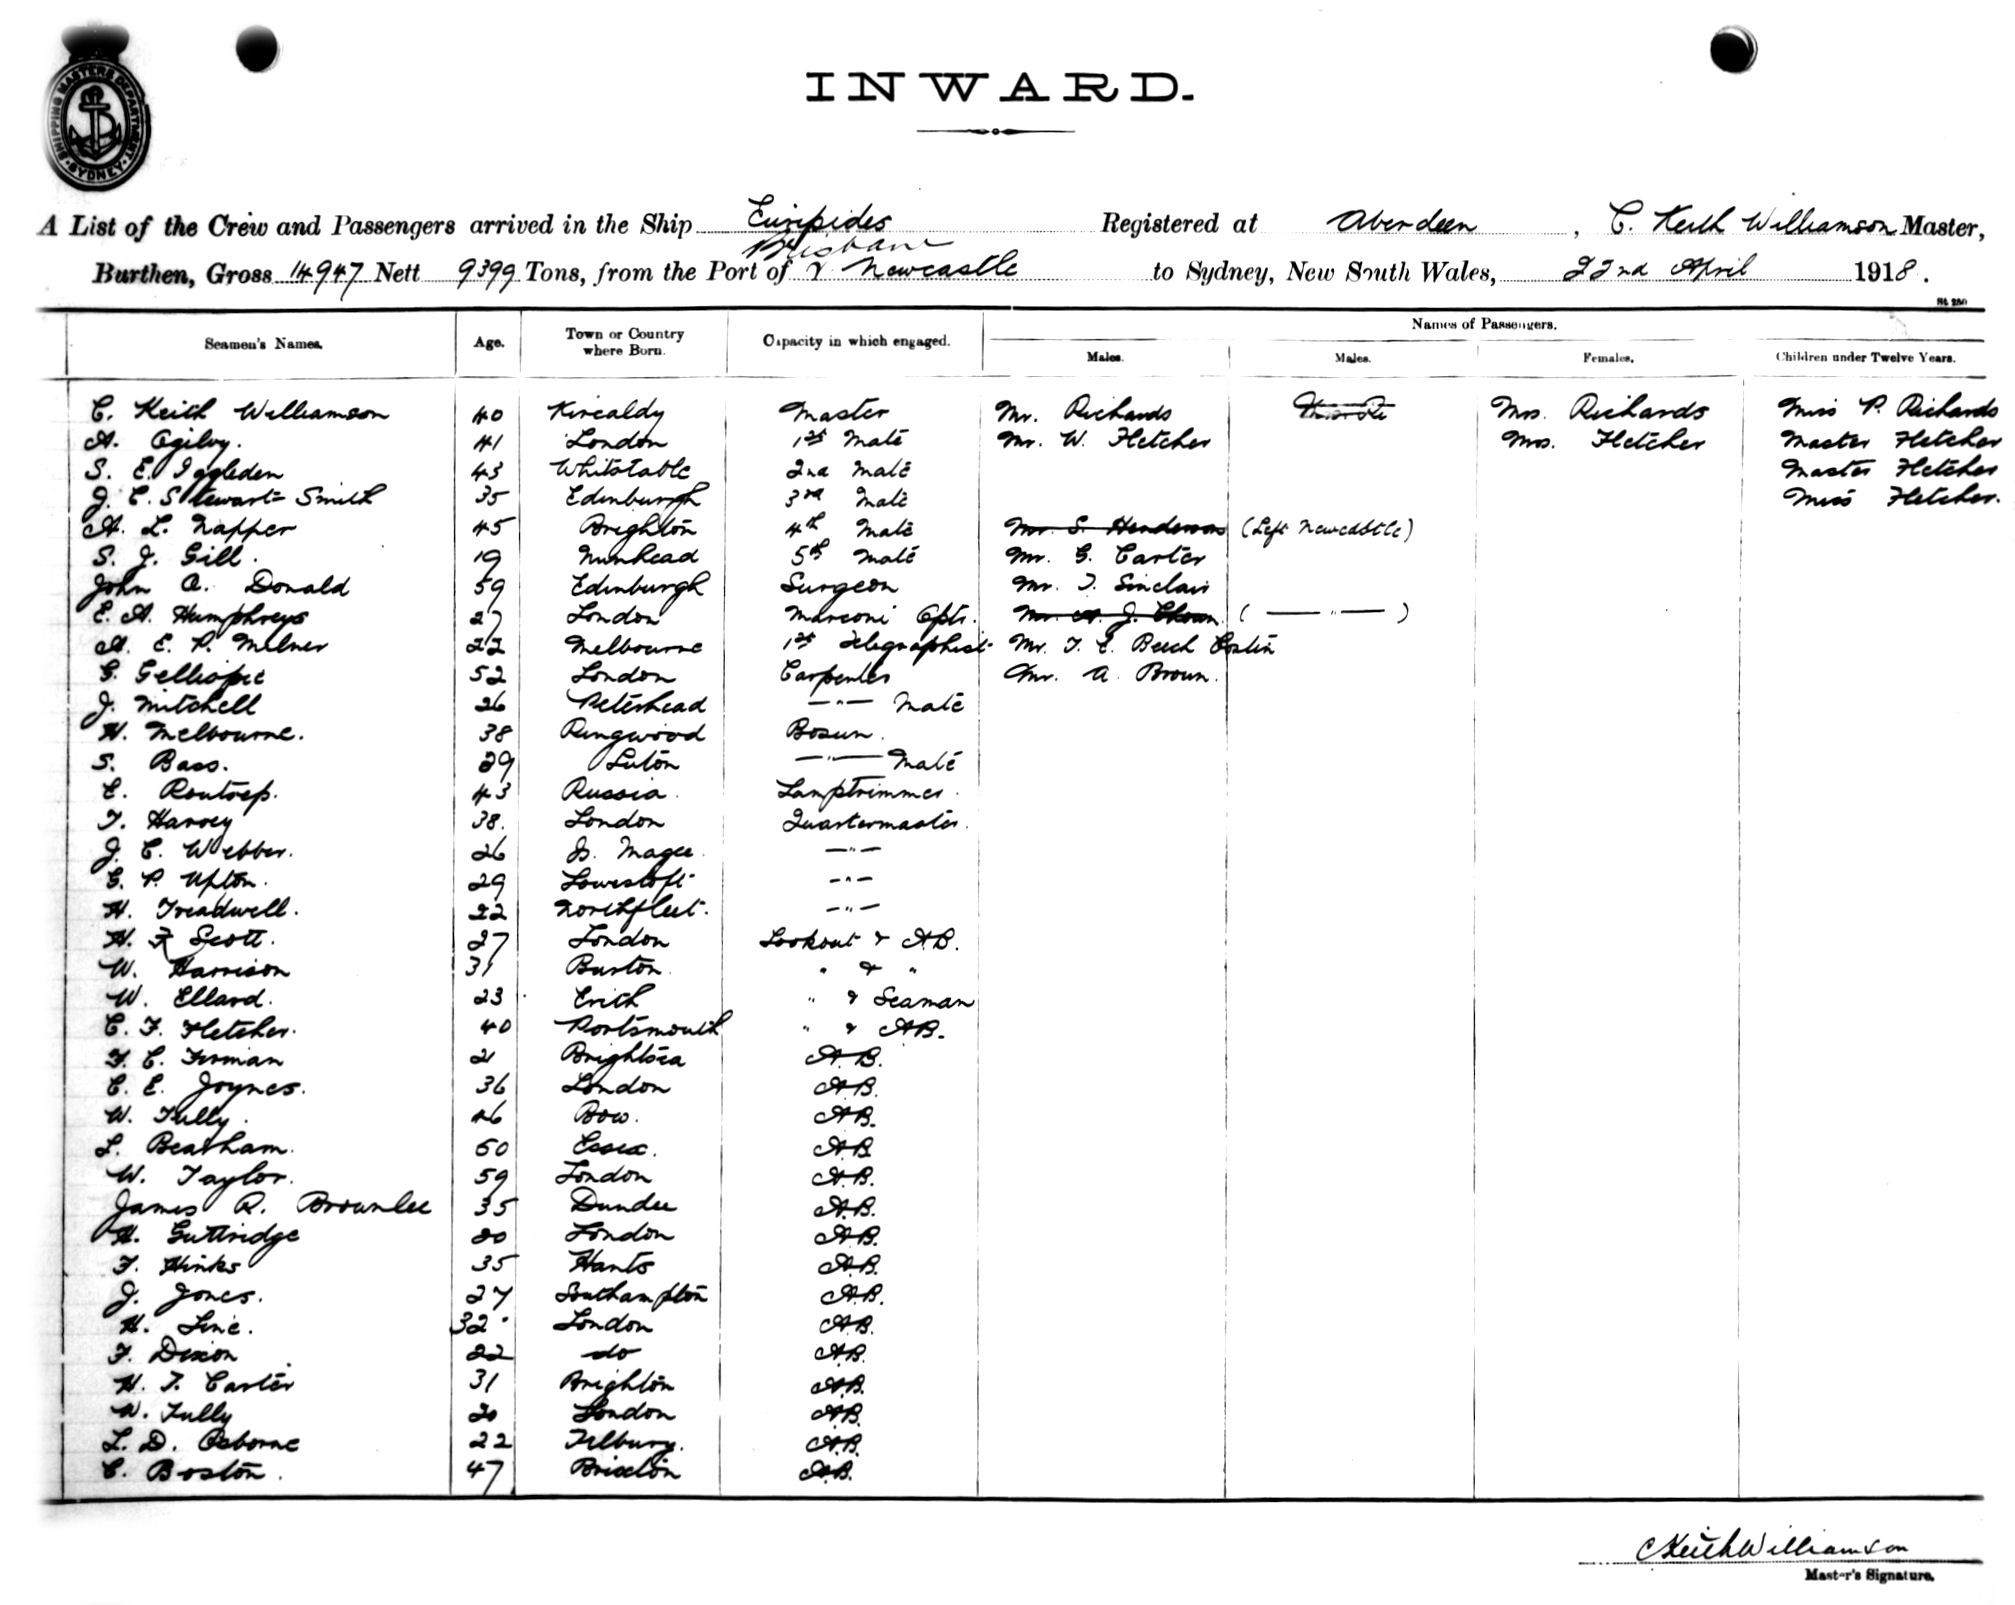 SHIPPING MASTERS DEPARTMENT
SYDNEY
INWARD.
A List of the Crew and Passengers arrived in the Ship Euripides Registered at Aberdeen, C. Keith Williamson Master,
Brisbane
Burthen, Gross 14947 Nett 9399 Tons, from the Port of & Newcastle to Sydney, New South Wales, 22nd April 1918.
St 250
Names of Passengers.
Seamen's Names. Age. Town or Country where Born. Capacity in which engaged. Males. Males. Females. Children under Twelve Years.
C. Keith Williamson 40 Kircaldy Master Mr. Richards Mrs. Richards Miss P. Richards
A. Ogilvy. 41 London 1st Mate Mr. W. Fletcher Mrs. Fletcher Master Fletcher
S. E. Iggleden 43 Whitstable 2nd Mate Master Fletcher
J. C. Stewart-Smith 35 Edinburgh 3rd Mate Miss Fletcher.
A. L. Napper 45 Brighton 4th Mate Mr. S. Henderson (Left Newcastle)
S. J. Gill. 19 Nunhead 5th Mate Mr. G. Carter
John A. Donald 59 Edinburgh Surgeon Mr. T. Sinclair
E. A. Humphreys 27 London Marconi Optr. Mr. A. J. ( — " — )
A. E. P. Milner 22 Melbourne 1st Telegraphist Mr. T. E. Beech Costin
G. 52 London Carpenter Mr. A. Brown.
J. Mitchell 26 Peterhead — " — Mate
H. Melbourne. 38 Ringwood Bosun.
S. Bass. 29 Luton — " — Mate
E. 43 Russia. Lamptrimmer.
T. Harvey 38. London Quartermaster.
J. C. Webber. 26 Is. Magee. — " —
G. P. Upton. 29 Lowestoft — " —
H. Treadwell. 22 Northfleet. — " —
H. F. Scott. 27 London Lookout & A.B.
W. Harrison 31 Burton. " & "
W. Ellard. 23 Erith " & Seaman
C. F. Fletcher. 40 Portsmouth " & A.B.
F. C. Firman 21 Brightsea A.B.
C. E. Joynes. 36 London A.B.
W. Tully. 46 Bow. A.B.
L. Beatham. 50 Essex. A.B.
W. Taylor. 59 London A.B.
James R. Brownlee 35 Dundee A.B.
H. Guttridge 20 London A.B.
F. Hinks 35 Hants A.B.
J. Jones. 27 Southampton A.B.
H. Line. 32 London A.B.
F. Dixon 22 do A.B.
H. T. Carter 31 Brighton A.B.
W. Tully 20 London A.B.
L. D. Osborne 22 Tilbury. A.B.
C. Boston. 47 Brixton A.B.
C Keith Williamson
Master's Signature.